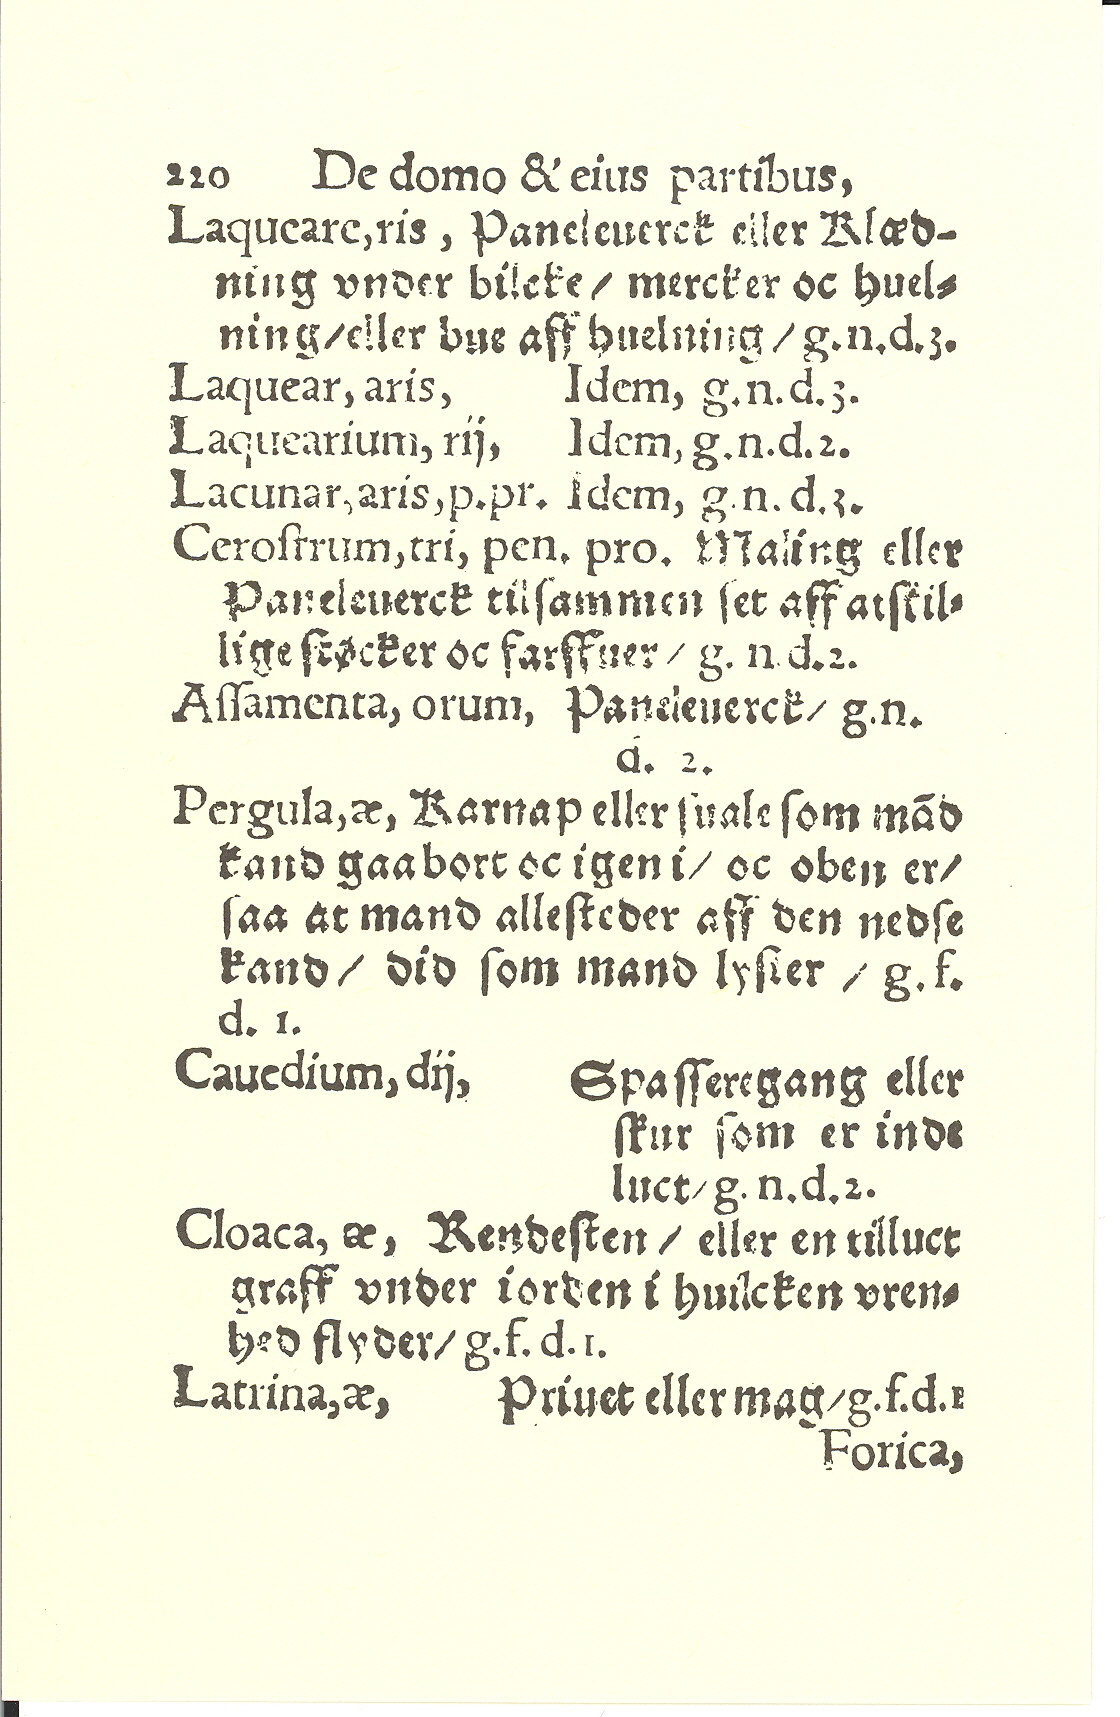 220 De domo & eius partibus,
Laqueare,ris, Paneleuerck eller Klæd-
ning vnder bilcke/ mercker oc huel-
ning/eller bue aff huelning/ g.n.d.3.
Laquear, aris, Idem, g.n.d.3.
Laquearium, rij, Idem, g.n.d.2.
Lacunar,aris,p.pr. Idem, g.n.d.3.
Ceroſtrum,tri, pen. pro. Maling eller
Paneleuerck tilſammen ſet aff atſkil-
lige ſtøcker oc farffuer/ g. n d.2.
Aſſamenta, orum, Paneleuerck/ g.n.
d. 2.
Pergula,æ, Karnap eller ſuale ſom mãd
kand gaa bort oc igen i/ oc oben er/
ſaa at mand alleſteder aff den nedſe
kand/ did ſom mand lyſter / g.f.
d. 1.
Cauedium, dij, Spaſſeregang eller
ſkur ſom er inde
luct/ g. n.d.2.
Cloaca, æ, Rendeſten / eller en tilluct
graff vnder iorden i huilcken vren-
hed flyder/ g.f.d.1.
Latrina,æ, Priuet eller mag/g.f.d.1
Forica,